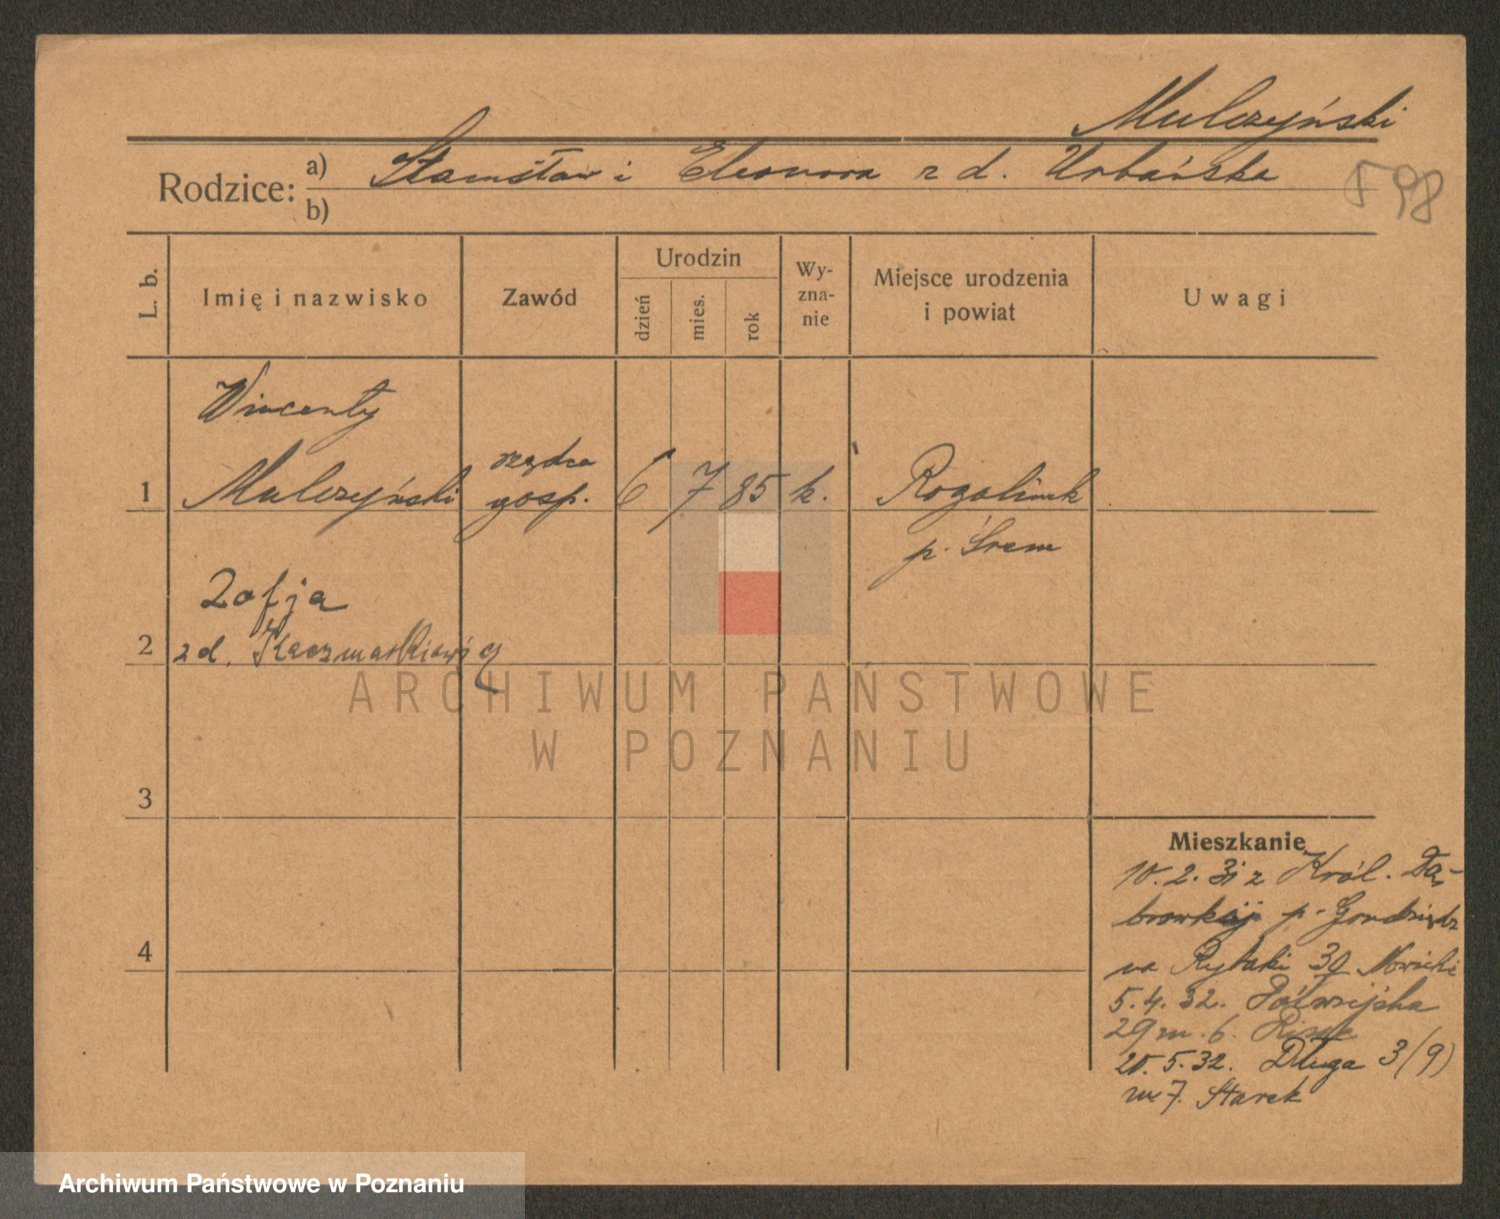 Mulczyński
Rodzice: a) Stanisław i Eleonora z d. Urbańska
b)
598
L. b.
Imię i nazwisko
Zawód
Urodzin
dzień
mies.
rok
Wy-
zna-
nie
Miejsce urodzenia
i powiat
Uwagi
Wincenty
1 Mulczyński rządca gosp. 6 7 85 k. Rogalinek
p. Śrem
Zofja
2 z d. Kaczmarkiewicz
ARCHIWUM PAŃSTWOWE
W POZNANIU
3
4
Mieszkanie
10. 2. 31 z Król. Dą-
browkaj p.
na Rybaki 30 Nowicki
5. 4. 32. Półwiejska
29 m. 6.
20. 5. 32. Długa 3 (9)
m 7. Starek
Archiwum Państwowe w Poznaniu